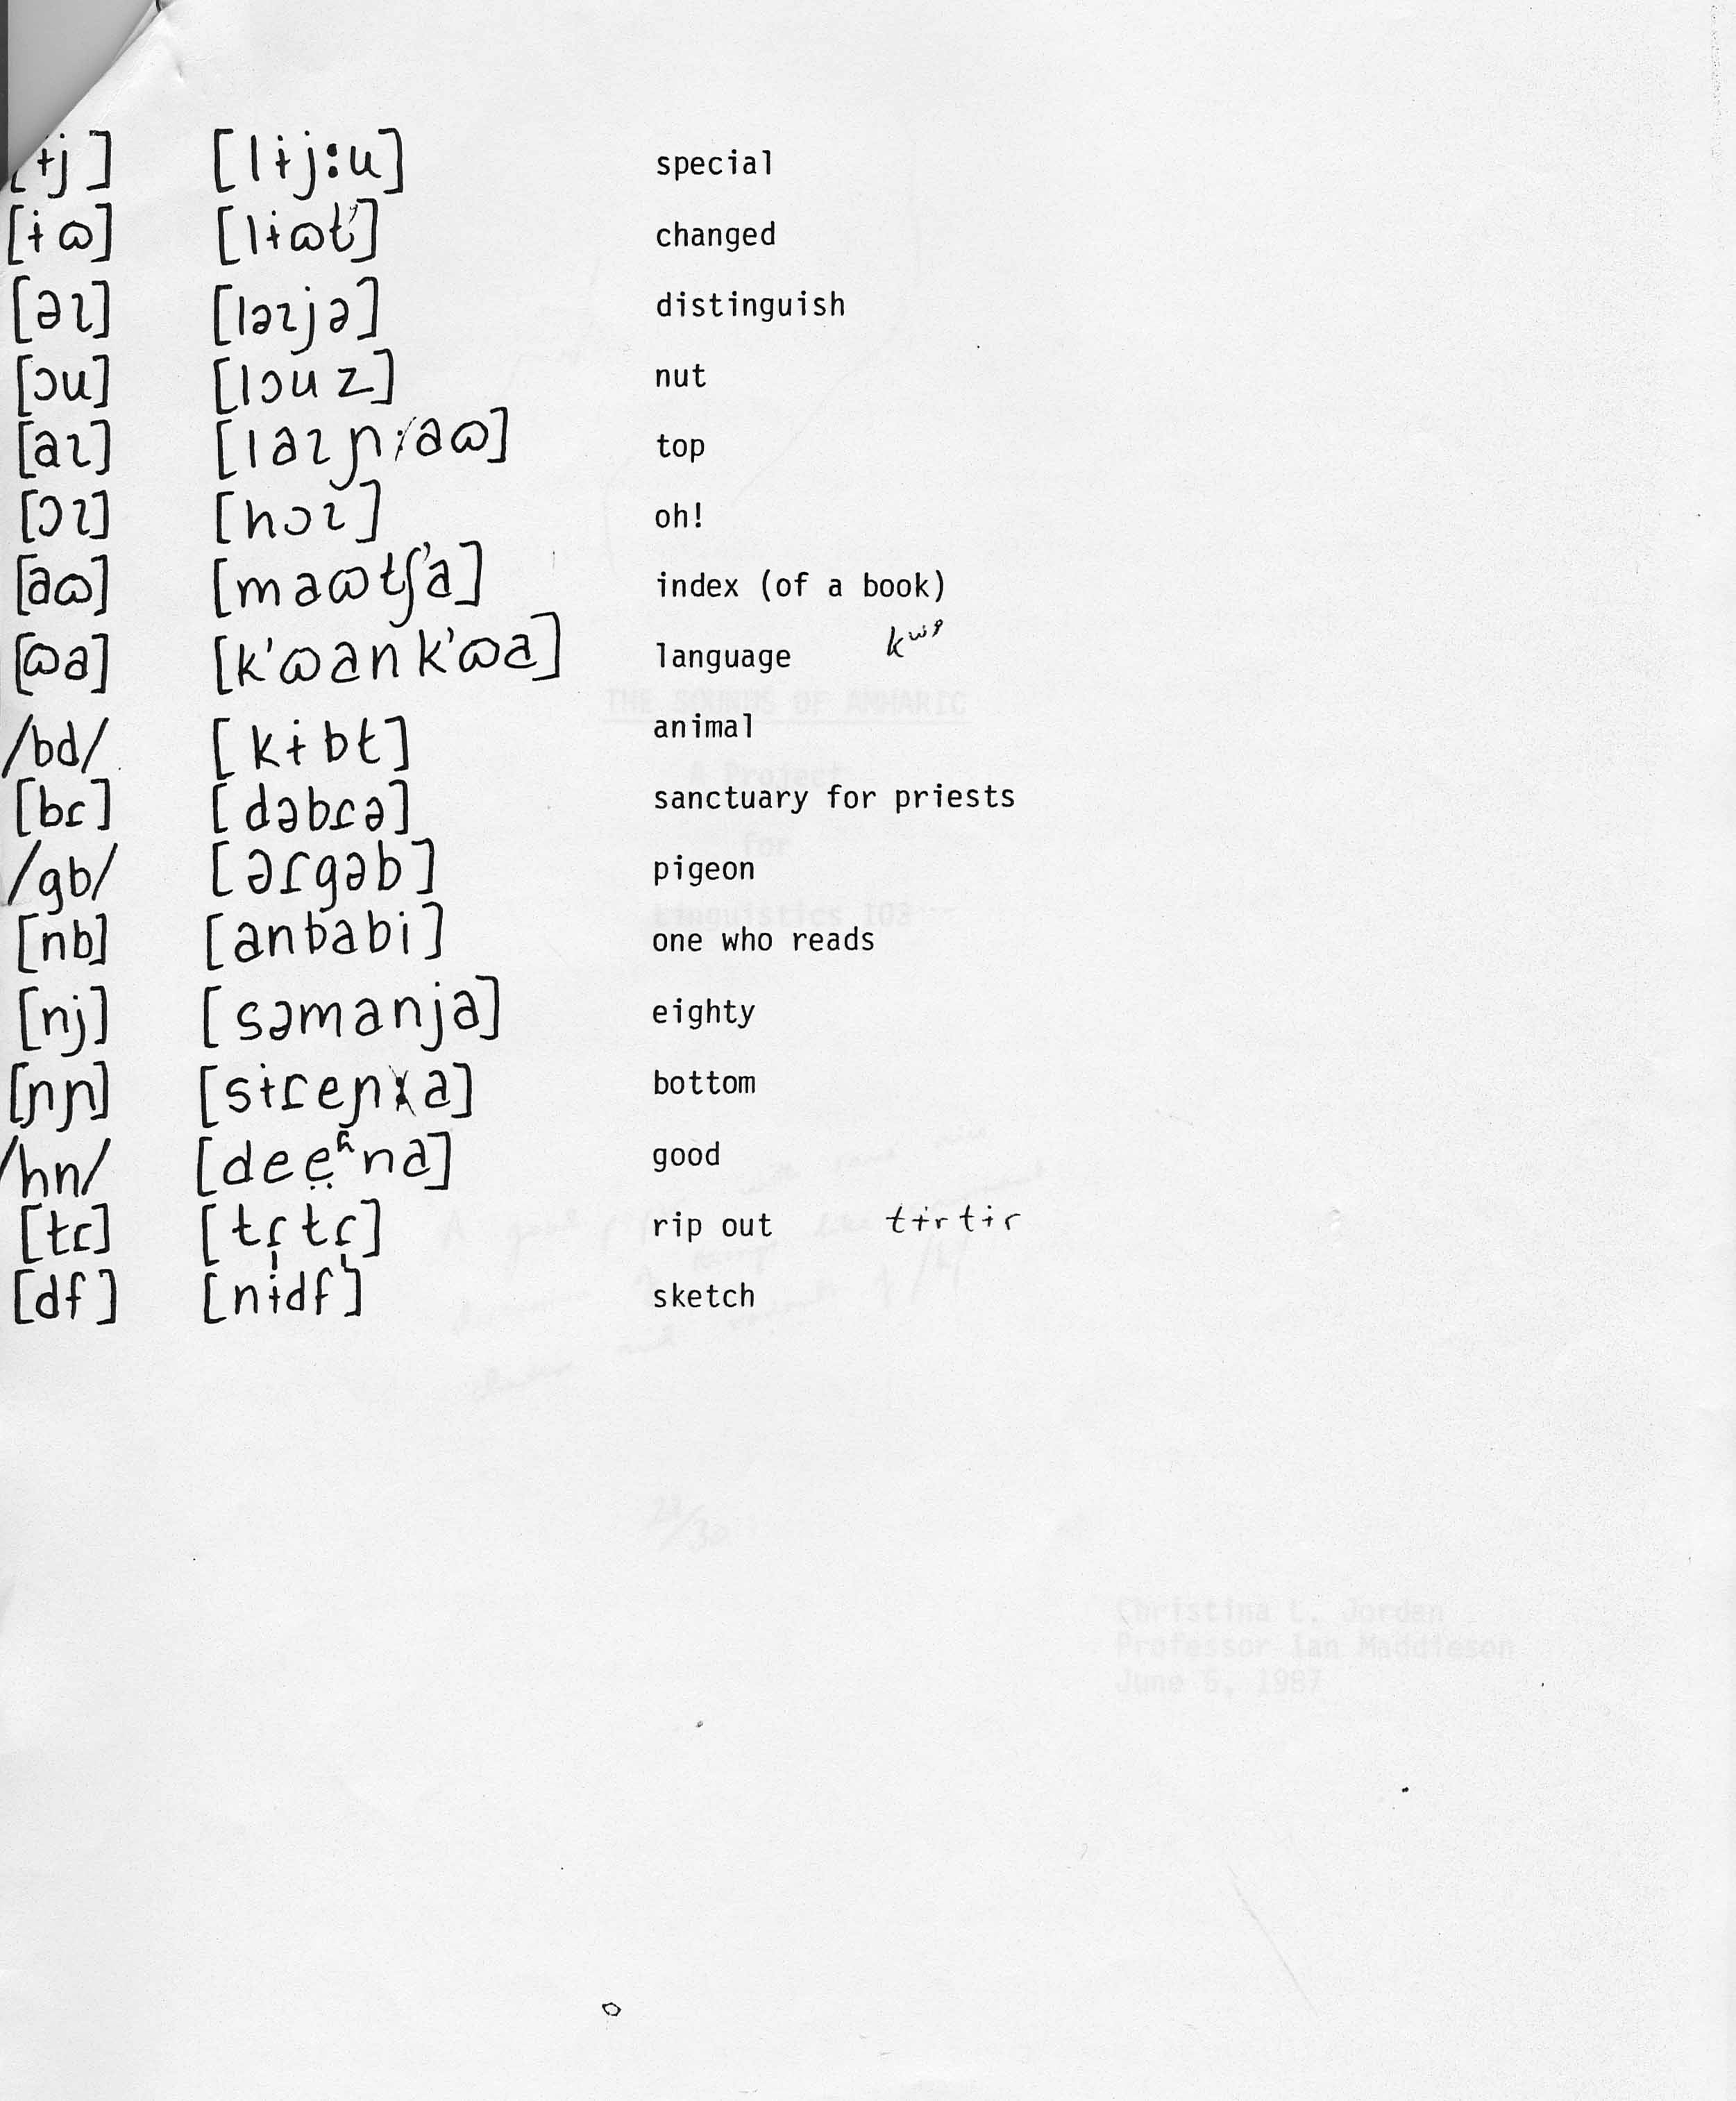 [ɨj] [lɨj:u] special
[ɨɷ] [lɨɷt'] changed
[əɿ] [ləɿjə] distinguish
[ɔu] [lɔuz] nut
[aɿ] [laɿɲaɷ] top
[ɔɿ] [hɔɿ] oh!
[aɷ] [maɷtʃ'a] index (of a book)
[ɷa] [k'ɷank'ɷa] language kʷˀ
/bd/ [kɨbt] animal
[bɾ] [dəbɾə] sanctuary for priests
/gb/ [əɾgəb] pigeon
[nb] [anbabi] one who reads
[nj] [səmanja] eighty
[ɲɲ] [sɨɾeɲa] bottom
/hn/ [dee̤ʱna] good
[tɾ] [tɾ̩tɾ̩] rip out tɨrtɨr
[df] [nɨdf] sketch
THE SOUNDS OF AMHARIC
A Project
for
Linguistics 103
Christina L. Jordan
Professor Ian Maddieson
June 5, 1987